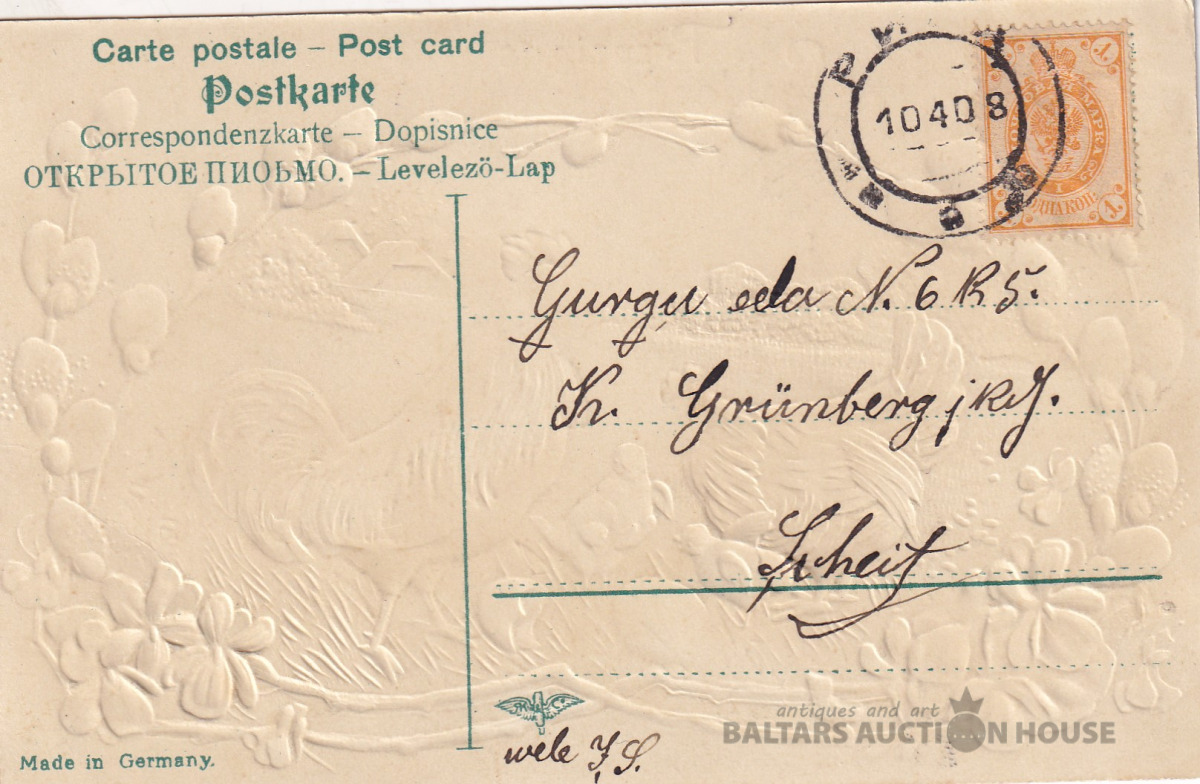 Carte postale – Post card
Postkarte
Correspondenzkarte – Dopisnice
ОТКРЫТОЕ ПИОЬМО. – Levelező-Lap
10 4 08
Gurgu eela N. 6 K 5.
K. Grünberg j k J.
Scheit
wele J. S.
Made in Germany.
antiques and art
BALTARS AUCTION HOUSE